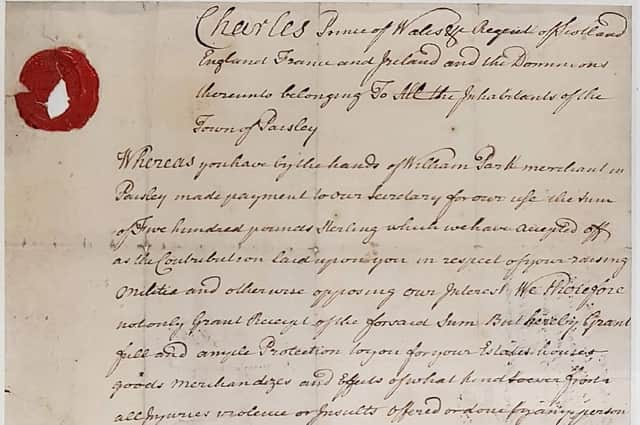 Charles Prince of Wales &c Regent of Scotland
England France and Ireland and the Dominions
thereunto belonging To All the Inhabitants of the
Town of Paisley
Whereas you have by the hands of William Park merchant in
Paisley made payment to our Secretary for our use the Sum
of Five hundred pounds Sterling which we have accepted off
as the Contribution laid upon you in respect of your raising
Militia and otherwise opposing our Interest We Therefore
not only Grant Receipt of the forsaid Sum But hereby Grant
full and ample Protection to you for your Estates houses
goods Merchandizes and Effects of what kind soever from
all Injuries violence or Insults Offered or done by any person